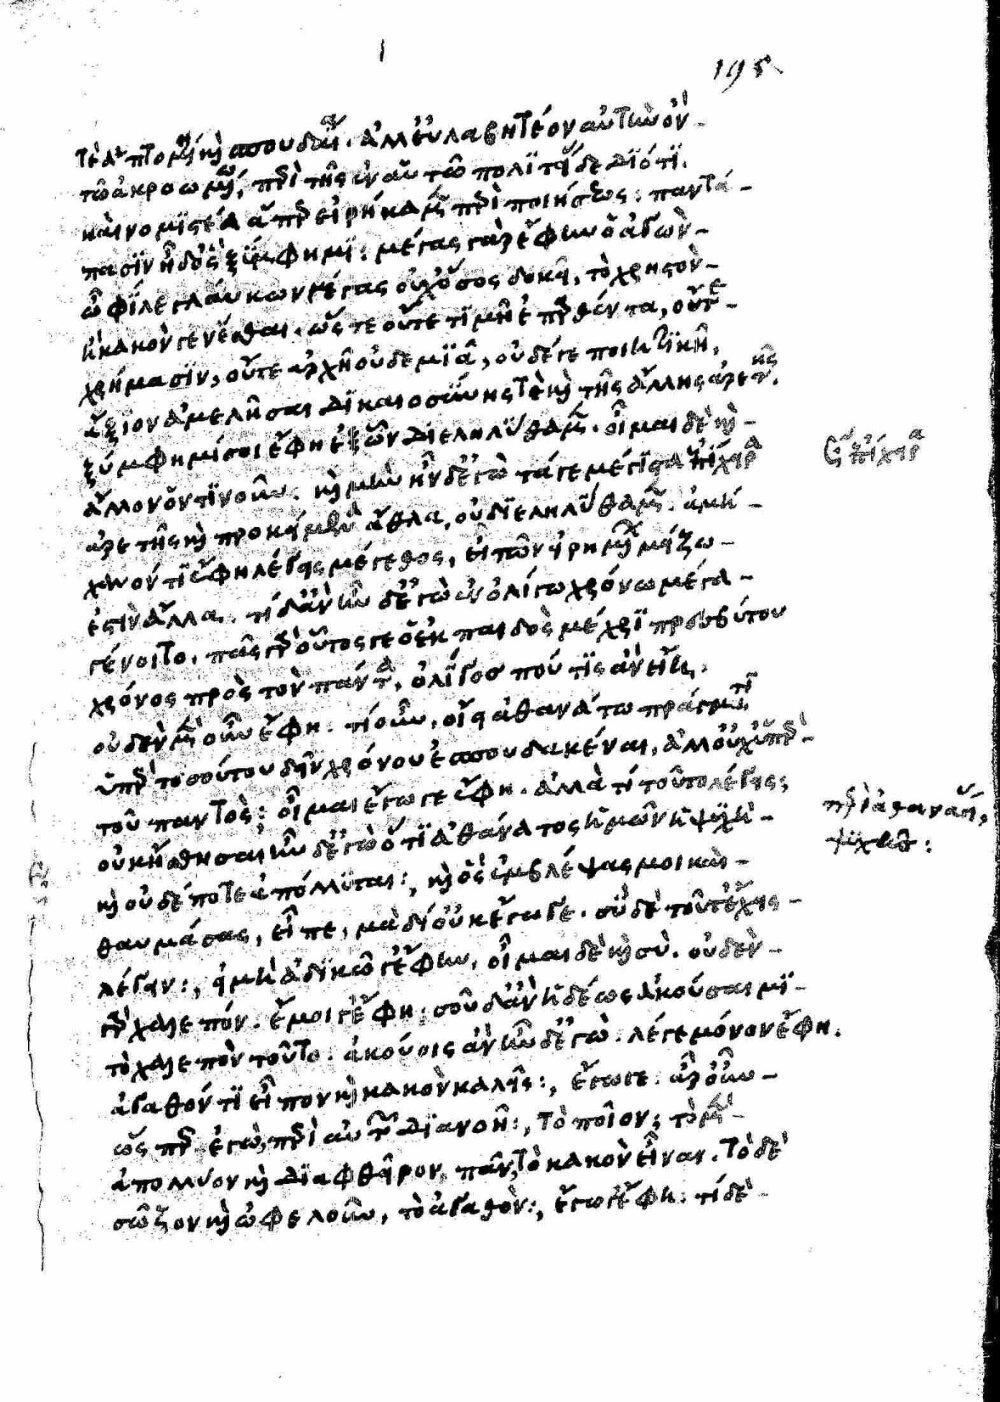 195
τε ἁπτομένη καὶ σπουδαία. ἀλλ' εὐλαβητέον αὐτὴν ὂν-
τῷ ἀκροωμένῳ, περὶ τῆς ἐν αὑτῷ πολιτείας δεδιότι.
καὶ νομιστέα ἅπερ εἰρήκαμεν περὶ ποιήσεως: παντά-
πασιν ἦν δ' ὃς ξύμφημι: μέγας γὰρ ἔφην ὁ ἀγὼν-
ὦ φίλε γλαύκων μέγας οὐχ ὅσος δοκεῖ, τὸ χρηστὸν-
ἢ κακὸν γενέσθαι. ὥστε οὔτε τιμῇ ἐπαρθέντα, οὔτε-
χρήμασιν, οὔτε ἀρχῇ οὐδεμιᾷ, οὐδέ γε ποιητικῇ,
ἄξιον ἀμελῆσαι δικαιοσύνης τὲ καὶ τῆς ἄλλης ἀρετῆς.
ξύμφημί σοι ἔφη ἐξ ὧν διεληλύθαμεν. οἶμαι δὲ καὶ-
ἄλλον ὁντινοῦν. καὶ μὴν ἦν δ' ἐγὼ τά γε μέγιστα ἐπίχειρα
ἀρετῆς καὶ προκείμενα ἆθλα, οὐ διεληλύθαμεν. ἀμή-
χανόν τι ἔφη λέγεις μέγεθος, εἰ τῶν εἰρημένων μείζω-
ἐστὶν ἄλλα. τί δ' ἂν ἦν δ' ἐγὼ ἐν ὀλίγω χρόνω μέγα-
γένοιτο. πᾶς γὰρ οὗτος γε ὁ ἐκ παιδὸς μέχρι πρεσβύτου
χρόνος πρὸς τὸν πάντα, ὀλίγος πού τις ἂν εἴη.
οὐδὲν μὲν οὖν ἔφη. τί οὖν, οἴει ἀθανάτω πράγματι
ὑπὲρ τοσούτου δεῖν χρόνου ἐσπουδακέναι, ἀλλ' οὐχ ὑπὲρ-
τοῦ παντός: οἶμαι ἔγωγε ἔφη. ἀλλὰ τί τοῦτο λέγεις;
οὐκ ᾔσθησαι ἦν δ' ἐγὼ ὅτι ἀθάνατος ἡμῶν ἡ ψυχὴ-
καὶ οὐδέποτε ἀπόλλυται:, καὶ ὃς ἐμβλέψας μοι καὶ-
θαυμάσας, εἶπε, μὰ δί' οὐκ ἔγωγε. σὺ δὲ τοῦτ' ἔχεις-
λέγειν:, εἰ μὴ ἀδικῶ γ' ἔφην. οἶμαι δὲ καὶ σύ. οὐδὲν-
γὰρ χαλεπόν. ἔμοιγ' ἔφη: σοῦ δ' ἂν ἡδέως ἀκούσαιμι-
τὸ χαλεπὸν τοῦτο. ἀκούοις ἂν ἦν δ' ἐγώ. λέγε μόνον ἔφη.
ἀγαθόν τι εἶπον καὶ κακὸν καλεῖς:, ἔγωγε. ἆρ' οὖν-
ὥσπερ ἐγὼ, περὶ αὐτῶν διανοῇ:, τὸ ποῖον; τὸ μὲν-
ἀπολλύον καὶ διαφθεῖρον, πᾶν, τὸ κακὸν εἶναι. τὸ δὲ
σῶζον καὶ ὠφελοῦν, τὸ ἀγαθόν:, ἔγωγ' ἔφη. τί δὲ-
ἐπίχειρα
περὶ ἀθανασίας
ψυχῆς: